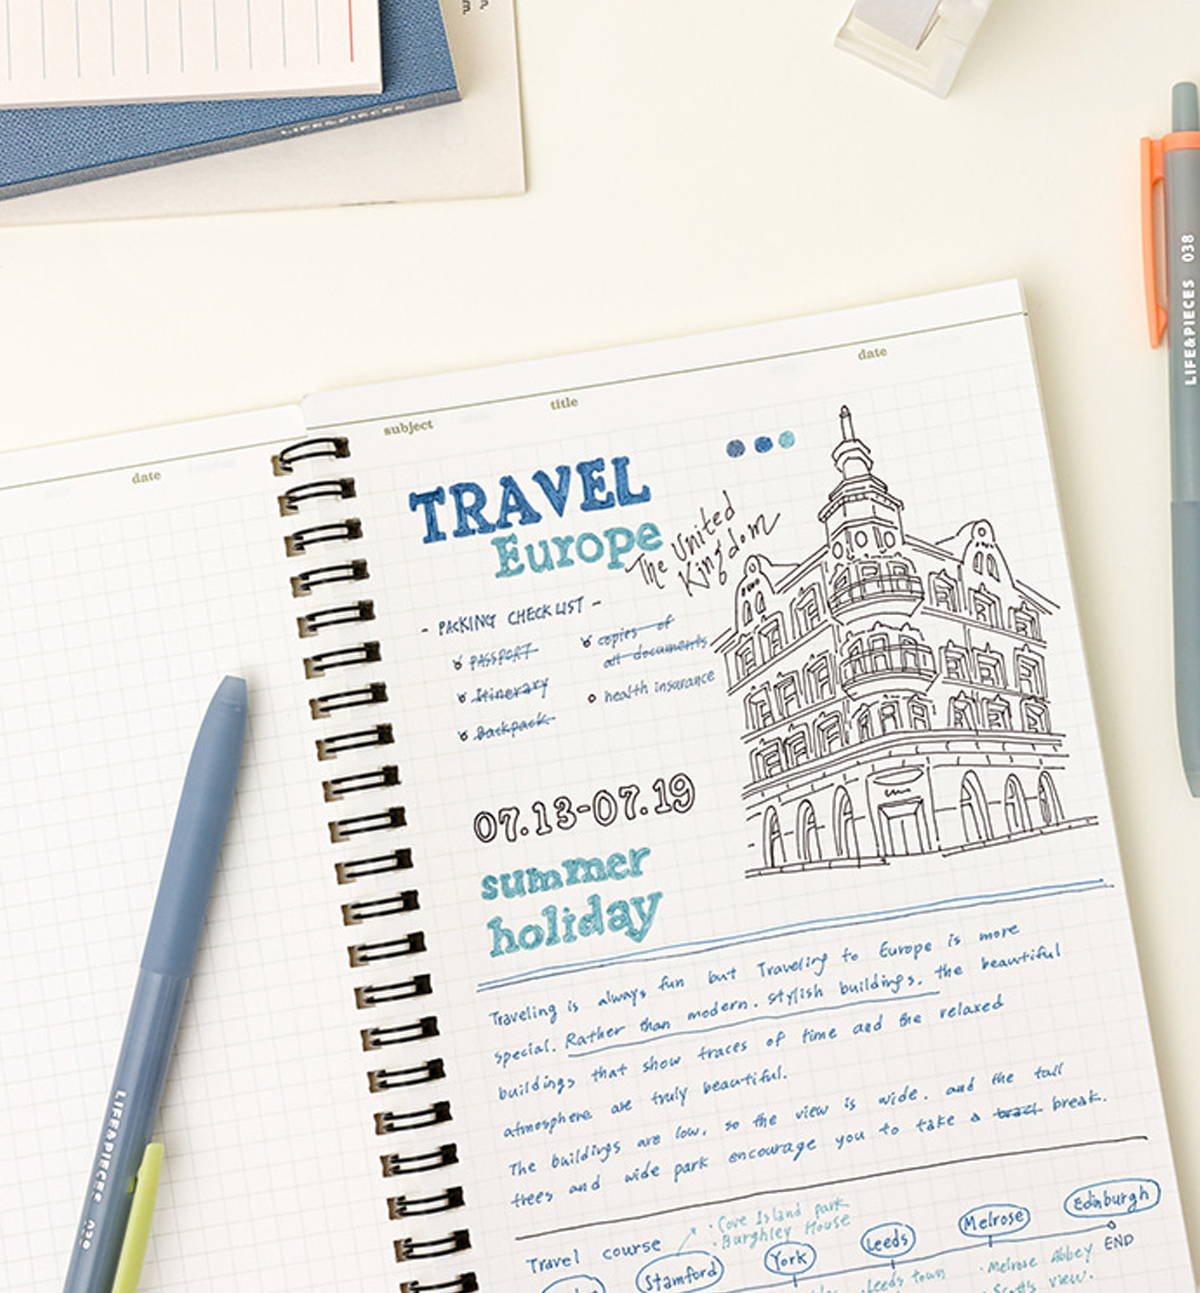 LIFE&PIECES
date
subject
title
date
TRAVEL
Europe
The United
Kingdom
- PACKING CHECKLIST -
PASSPORT
Itinerary
Backpack
copies of
all documents
health insurance
07.13-07.19
summer
holiday
Traveling is always fun but Traveling to Europe is more
special. Rather than modern. stylish buildings, the beautiful
buildings that show traces of time and the relaxed
atmosphere are truly beautiful.
The buildings are low, so the view is wide. and the tall
trees and wide park encourage you to take a break.
Travel course
· Cove Island park
· Burghley House
Stamford
York
Leeds
Melrose
Edinburgh
END
Leeds town
· Melrose Abbey
Scott's view.
LIFE&PIECES 038
LIFE&PIECES 038